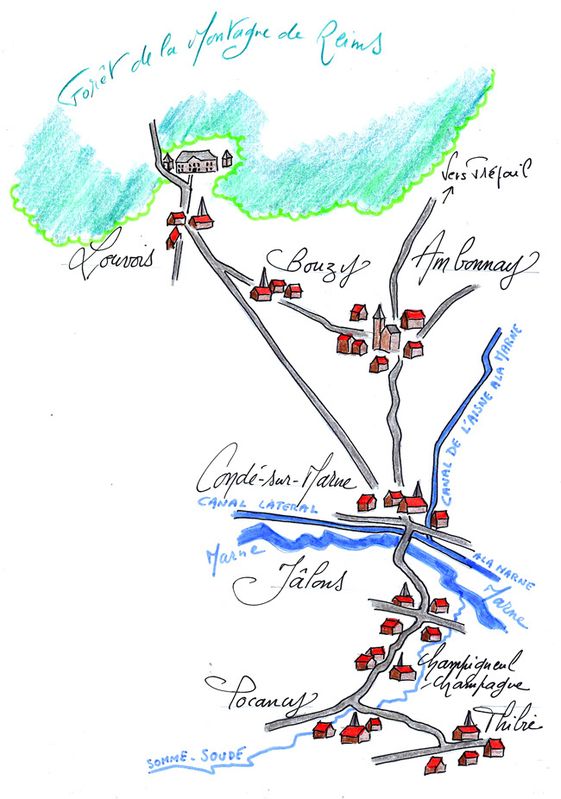 Forêt de la Montagne de Reims
Vers Tréfail
Louvois
Bouzy
Ambonnay
CANAL DE L'AISNE A LA MARNE
Condé-sur-Marne
CANAL LATERAL
A LA MARNE
Marne
Marne
Jâlons
Champigneul
-Champagne
Pocancy
Thibie
SOMME-SOUDE